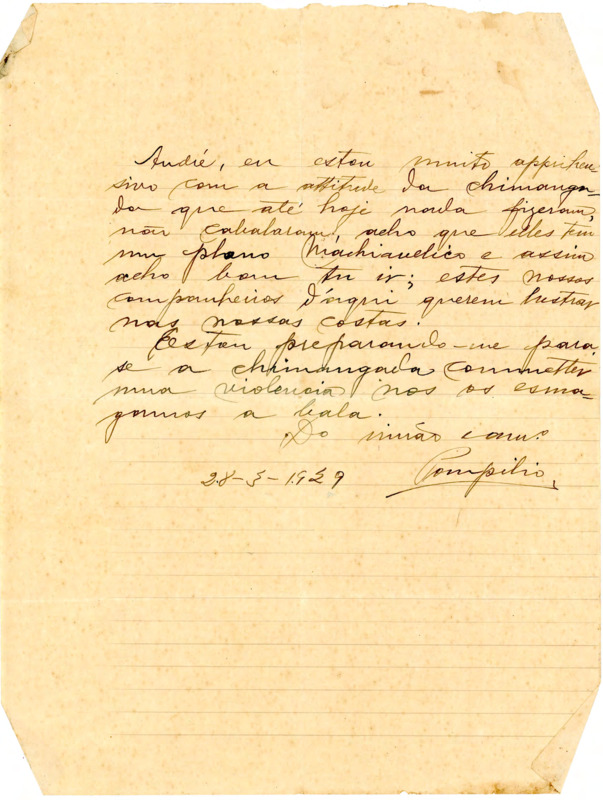 André, eu estou muito apprihen
sivo com a attitude da chimanga-
da que até hoje nada fizeram,
não cabalaram, acho que elles tem
um plano Machiavelico e assim
acho bom tu ir; estes nossos
companheiros d'aqui querem lustrar
nas nossas costas.
Estou preparando-me para
se a chimangada commetter
uma violencia nos os esma-
gamos a bala.
Do irmão e amº
Pompilio,
28-5-1929